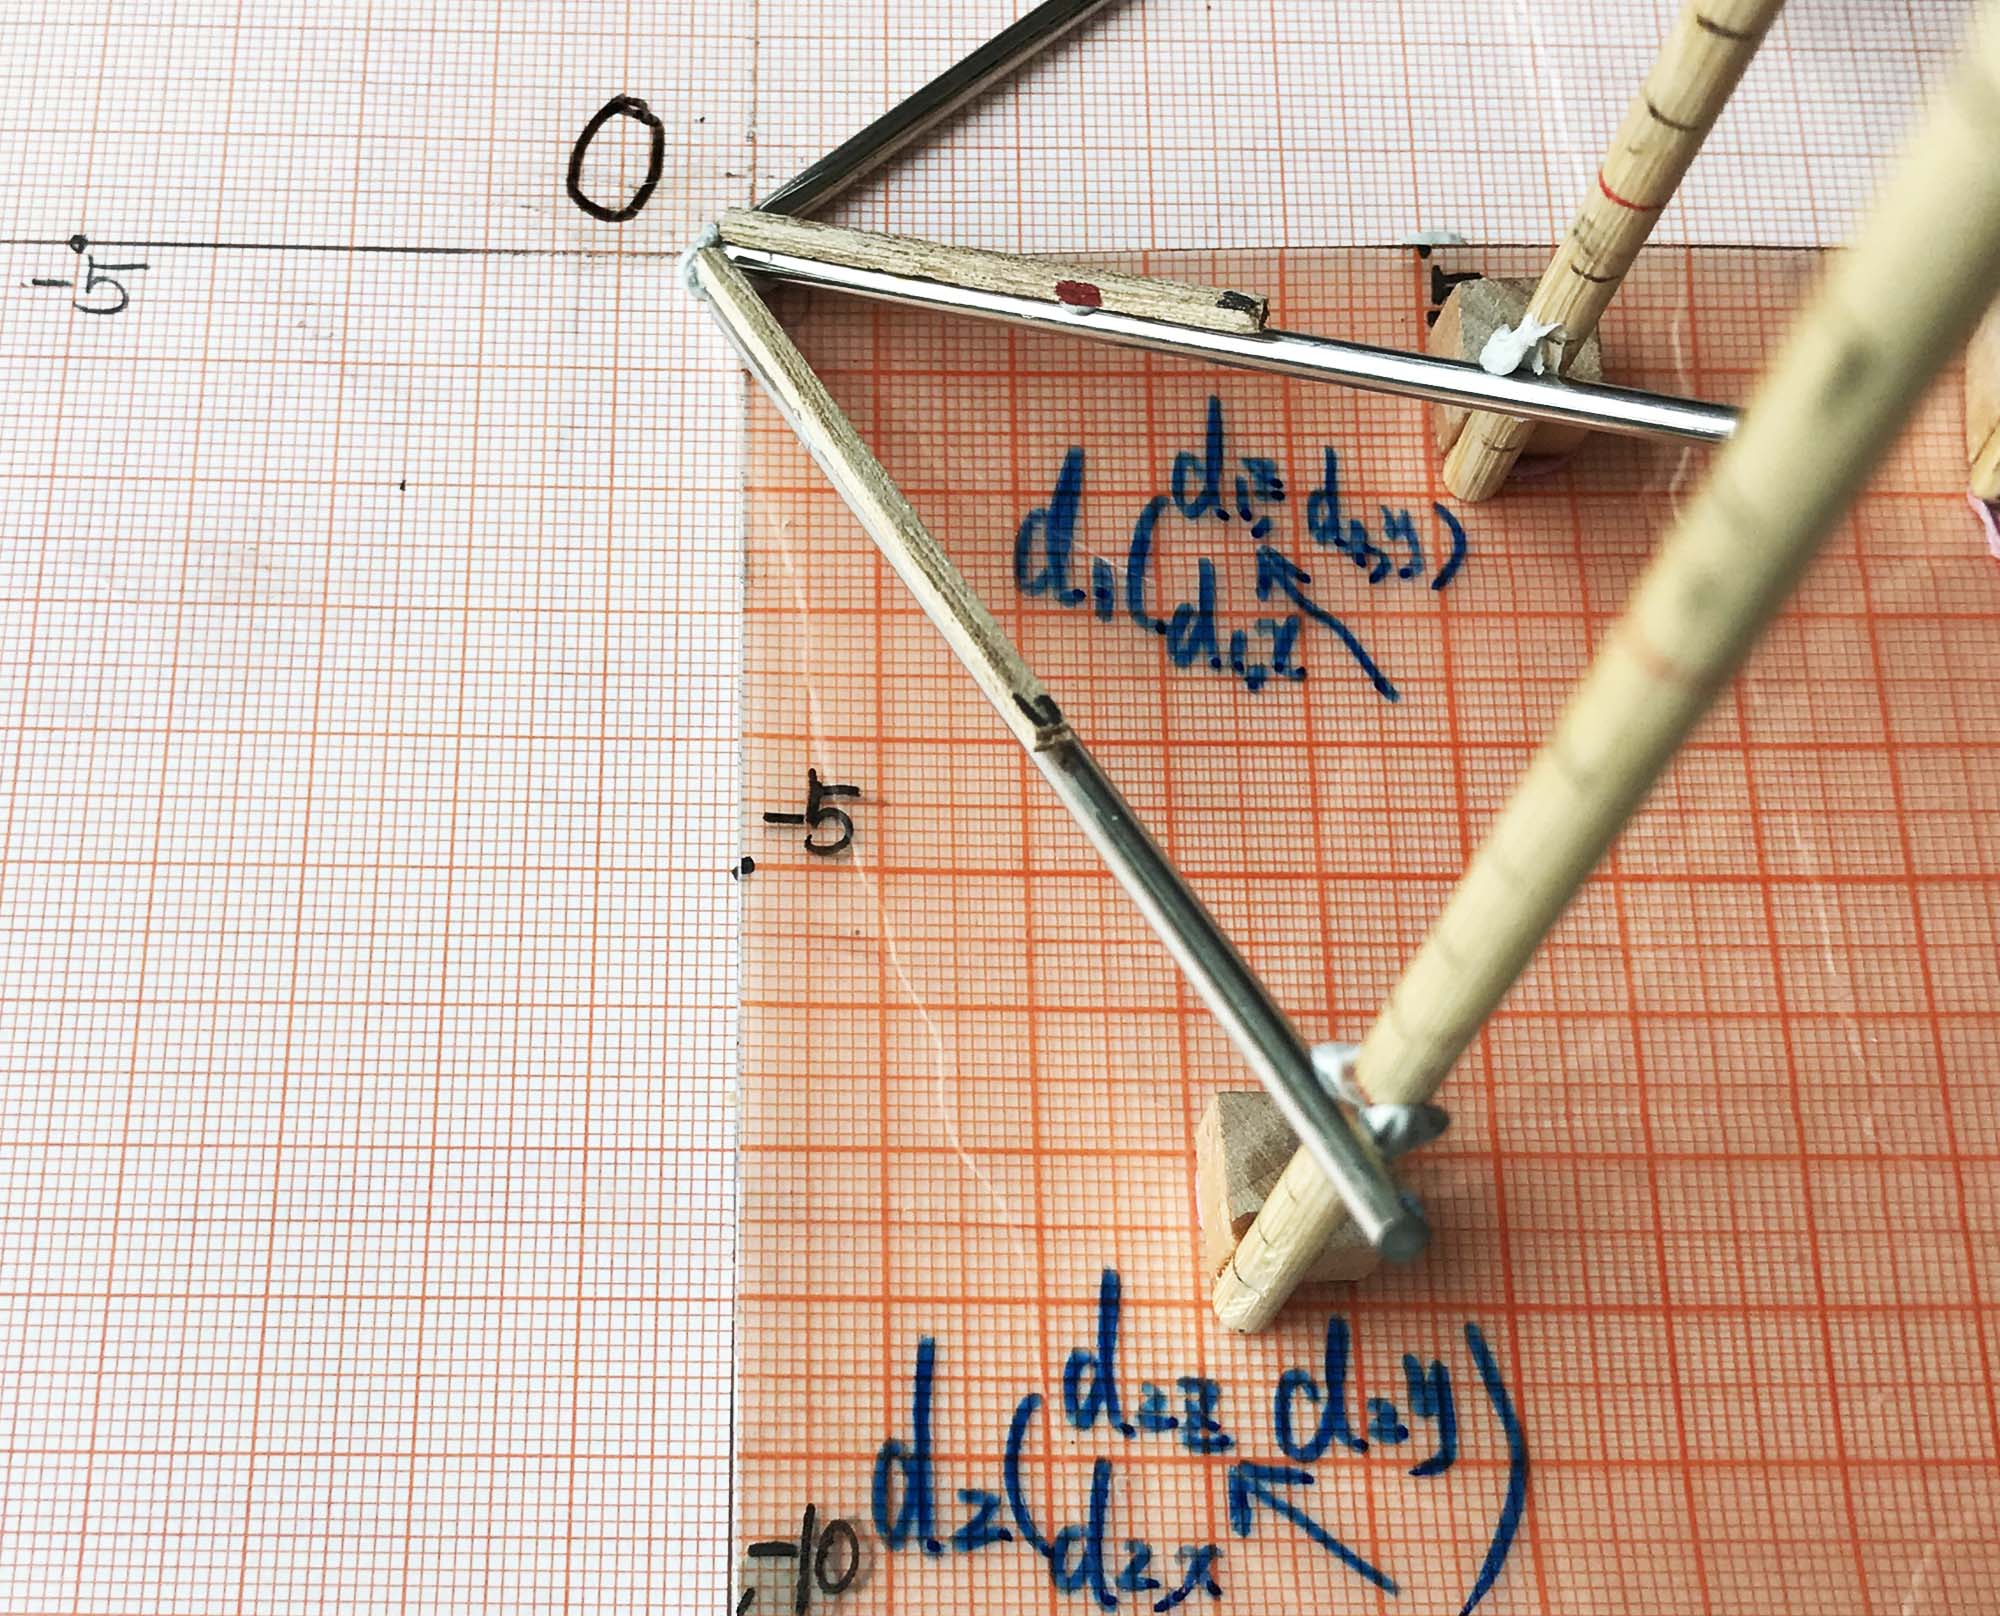 0
-5
d₁(d₁z d₁y)
d₁x
-5
d₂(d₂z d₂y)
d₂x
-10